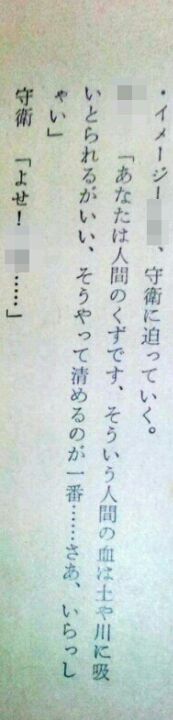 ・イメージー　　、守衛に迫っていく。
「あなたは人間のくずです、そういう人間の血は土や川に吸
いとられるがいい、そうやって清めるのが一番……さあ、いらっし
ゃい」
守衛　「よせ！　　……」